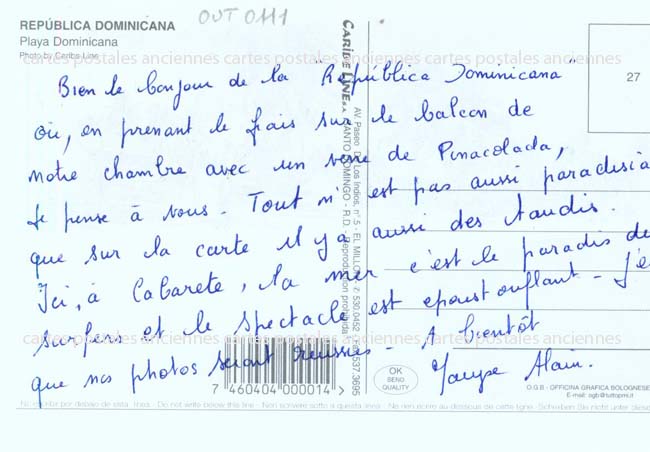 OUT 0111
REPÚBLICA DOMINICANA
Playa Dominicana
Photo by Caribe Line
cartes postales anciennes cartes postales anciennes cartes postales anciennes
Bien le bonjour de la "República Dominicana"
où, en prenant le frais sur le balcon de
notre chambre avec un verre de Pinacolada,
Je pense à vous. Tout n'est pas aussi paradisia
que sur la carte il y a aussi des taudis.
Ici, à Cabarete, la mer c'est le paradis de
surfers et le spectacle est epoustouflant - J'e
que nos photos seront réussies - A bientôt
Alain.
CARIBE LINE S.A.
AV. Paseo De Los Indios, n° 5 - EL MILLON
SANTO DOMINGO - R.D. - Reproduccion prohibida
27
cartes postales anciennes cartes postales anciennes cartes postales anciennes
7 460404 000014 >
OK
SENO
QUALITY
O.G.B - OFFICINA GRAFICA BOLOGNESE
E-mail: ogb@tuttopmi.it
No escribir por debajo de esta linea - Do not write below this line - Non scrivere sotto a questa linea - Ne rien ecrire au dessous de cette ligne - Schreiben Sie nicht unter diese